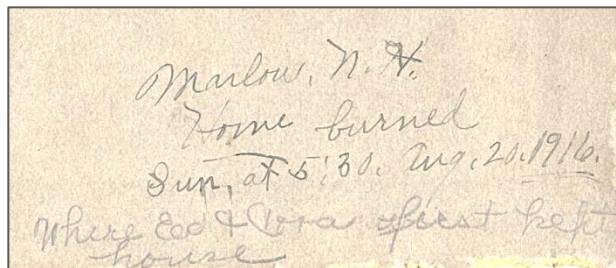 Marlow, N.H.
Home burned
Sun, at 5:30. Aug, 20, 1916.
Where Ed & Cora first kept
house